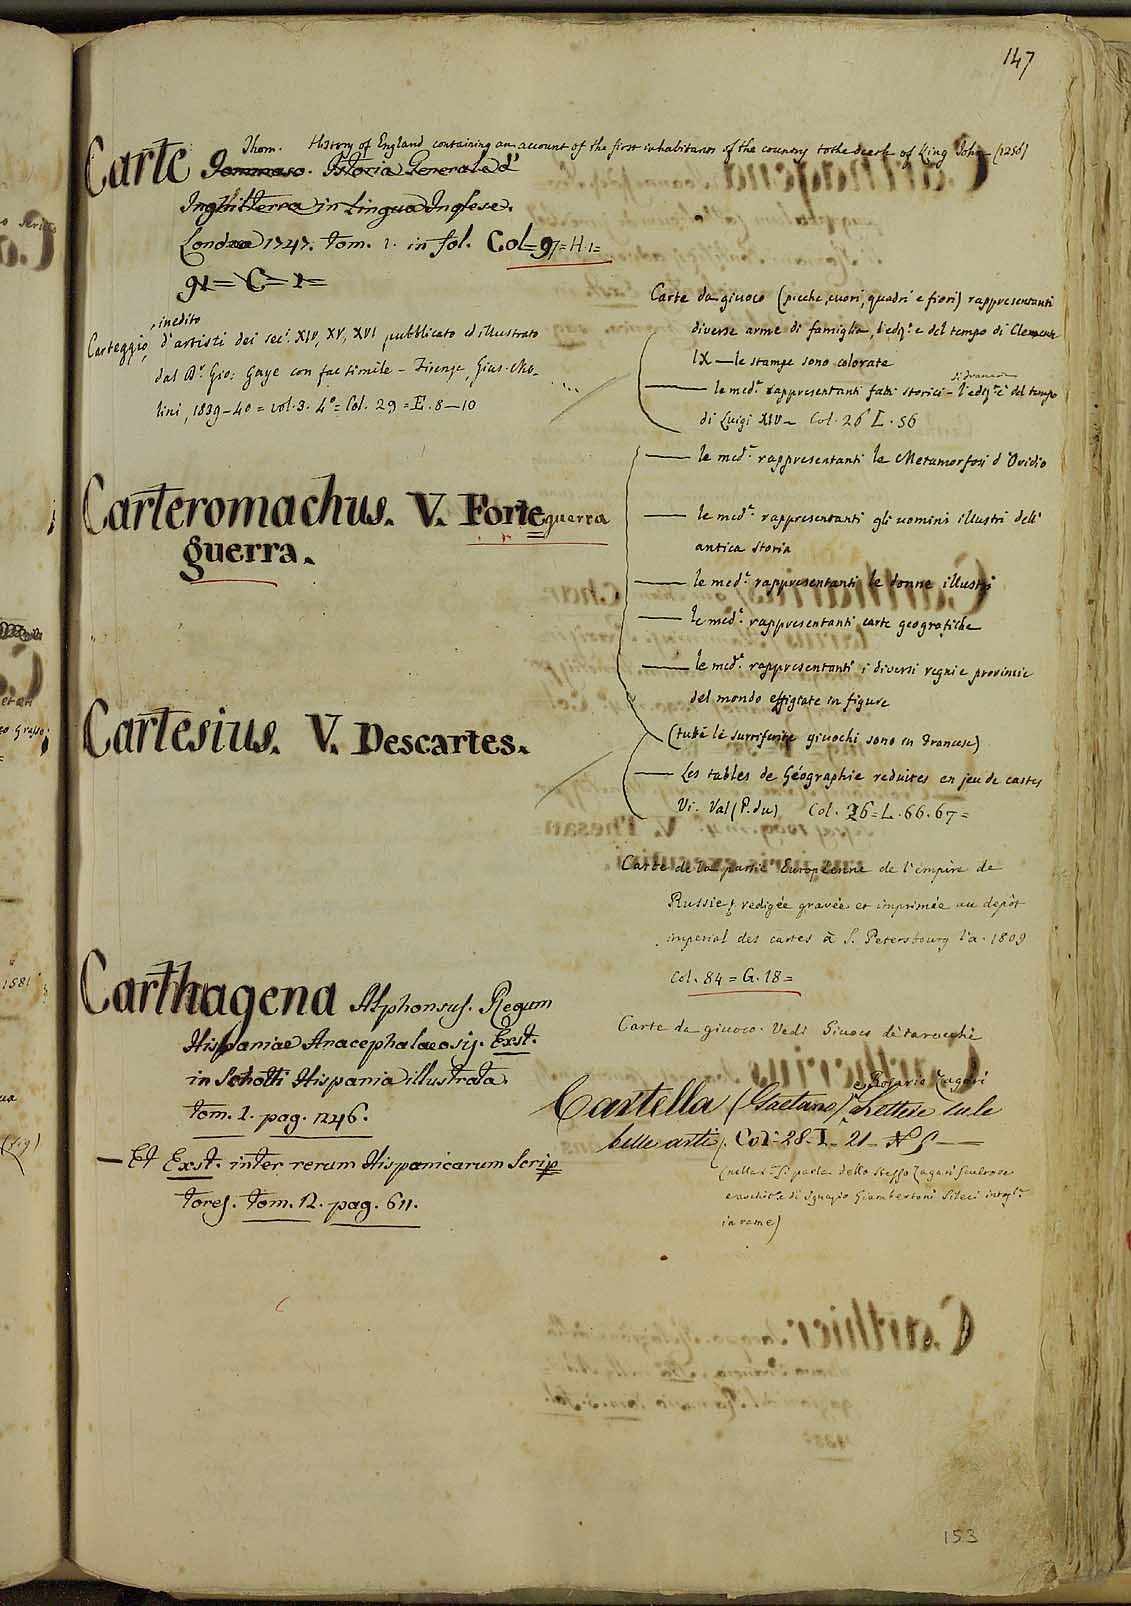 147
Carte Thom. History of England containing an account of the first inhabitants of the country to the death of King John - (1216)
Tommaso. Istoria Generale d'
Inghilterra in Lingua Inglese.
Londra 1747. Tom. 1. in fol. Col=97=H.1=
91= C= 1=
Carteggio, inedito d'artisti dei sec.i XIV, XV, XVI pubblicato ed illustrato
dal D.r Gio: Gaye con fac simile - Firenze, Gius. Mo-
lini, 1839-40 = vol. 3. 4° = Col. 29 = E. 8-10
Carteromachus. V. Forteguerra
guerra.
Cartesius. V. Descartes.
Carthagena Alphonsus. Regum
Hispaniae Anacephalaeosij. Exst.
in Schotti Hispania illustrata.
Tom. 1. pag. 1246.
— Et Exst. inter rerum Hispanicarum Scrip
tores. Tom. 12. pag. 611.
Carte da giuoco (picche, cuori, quadri e fiori) rappresentanti
diverse arme di famiglia, l'ediz.e del tempo di Clemente
IX — le stampe sono colorate
— le med.e rappresentanti fatti storici - l'ediz.e è del tempo
di Luigi XIV - Col. 26 L. 56
— le med.e rappresentanti le Metamorfosi d'Ovidio
— le med.e rappresentanti gli uomini illustri dell'
antica storia
— le med.e rappresentanti le donne illustri
— le med.e rappresentanti carte geografiche
— le med.e rappresentanti i diversi regni e provincie
del mondo effigiate in figure
(tutte le surriferite giuochi sono in Francese)
— Les tables de Géographie reduites en jeu de cartes
Vi. Val (P. du) Col. 26 = L. 66. 67 =
Carte de la partie Européenne de l'empire de
Russie, redigée gravée et imprimée au depôt
imperial des cartes à S. Petersbourg l'a. 1809
Col. 84 = G. 18 =
Carte da giuoco. Vedi Giuoco di tarocchi
Cartella (Gaetano) e Rosario Zagari Lettere sule
belle arti. Col. 28. I. 21
(nella s.a si parla dello stesso Zagari scultore
e archit.e di Ignazio Giambertoni
in rame)
153